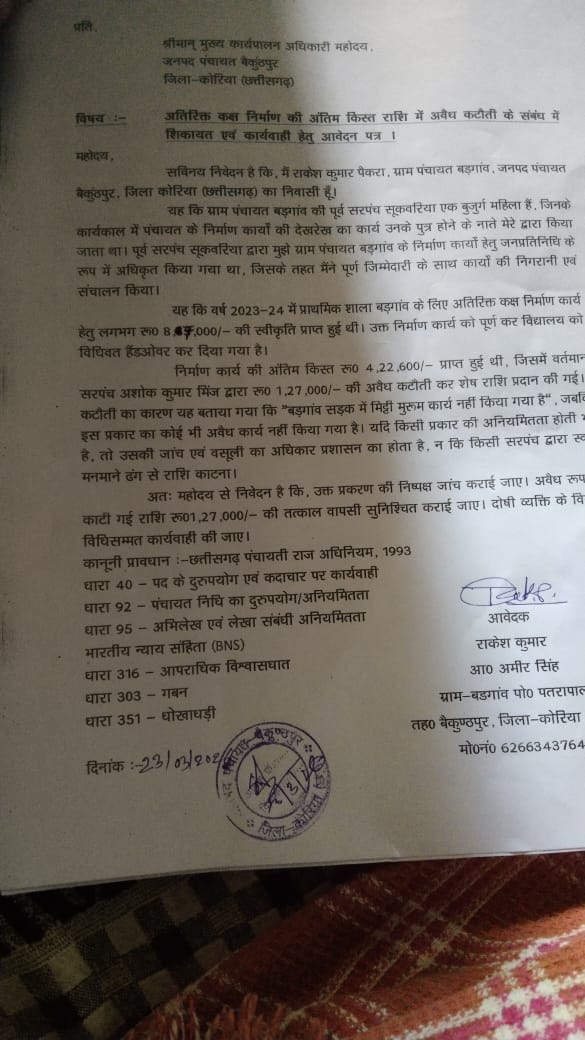 प्रति,
श्रीमान् मुख्य कार्यपालन अधिकारी महोदय,
जनपद पंचायत बैकुंठपुर
जिला–कोरिया (छत्तीसगढ़)
विषय :– अतिरिक्त कक्ष निर्माण की अंतिम किस्त राशि में अवैध कटौती के संबंध में
शिकायत एवं कार्यवाही हेतु आवेदन पत्र ।
महोदय,
सविनय निवेदन है कि, मैं राकेश कुमार पैकरा, ग्राम पंचायत बड़गांव, जनपद पंचायत
बैकुंठपुर, जिला कोरिया (छत्तीसगढ़) का निवासी हूँ।
यह कि ग्राम पंचायत बड़गांव की पूर्व सरपंच सूकवरिया एक बुजुर्ग महिला हैं, जिनके
कार्यकाल में पंचायत के निर्माण कार्यों की देखरेख का कार्य उनके पुत्र होने के नाते मेरे द्वारा किया
जाता था। पूर्व सरपंच सूकवरिया द्वारा मुझे ग्राम पंचायत बड़गांव के निर्माण कार्यों हेतु जनप्रतिनिधि के
रूप में अधिकृत किया गया था, जिसके तहत मैंने पूर्ण जिम्मेदारी के साथ कार्यों की निगरानी एवं
संचालन किया।
यह कि वर्ष 2023-24 में प्राथमिक शाला बड़गांव के लिए अतिरिक्त कक्ष निर्माण कार्य
हेतु लगभग रू0 की स्वीकृति प्राप्त हुई थी। उक्त निर्माण कार्य को पूर्ण कर विद्यालय को
विधिवत हैंडओवर कर दिया गया है।
निर्माण कार्य की अंतिम किस्त रू0 4,22,600/– प्राप्त हुई थी, जिसमें वर्तमान
सरपंच अशोक कुमार मिंज द्वारा रू0 1,27,000/– की अवैध कटौती कर शेष राशि प्रदान की गई।
कटौती का कारण यह बताया गया कि "बड़गांव सड़क में मिट्टी मुरूम कार्य नहीं किया गया है", जबकि
इस प्रकार का कोई भी अवैध कार्य नहीं किया गया है। यदि किसी प्रकार की अनियमितता होती
है, तो उसकी जांच एवं वसूली का अधिकार प्रशासन का होता है, न कि किसी सरपंच द्वारा
मनमाने ढंग से राशि काटना।
अतः महोदय से निवेदन है कि, उक्त प्रकरण की निष्पक्ष जांच कराई जाए। अवैध रूप
काटी गई राशि रू01,27,000/– की तत्काल वापसी सुनिश्चित कराई जाए। दोषी व्यक्ति के
विधिसम्मत कार्यवाही की जाए।
कानूनी प्रावधान :–छत्तीसगढ़ पंचायती राज अधिनियम, 1993
धारा 40 – पद के दुरुपयोग एवं कदाचार पर कार्यवाही
धारा 92 – पंचायत निधि का दुरुपयोग/अनियमितता
धारा 95 – अभिलेख एवं लेखा संबंधी अनियमितता
भारतीय न्याय संहिता (BNS)
धारा 316 – आपराधिक विश्वासघात
धारा 303 – गबन
धारा 351 – धोखाधड़ी
आवेदक
राकेश कुमार
आ0 अमीर सिंह
ग्राम–बडगांव पो0 पतरापाल
तह0 बैकुण्ठपुर, जिला–कोरिया
मो0नं0 6266343764
दिनांक :–23/03/202
पंचायत बैकुण्ठपुर
जिला–कोरिया